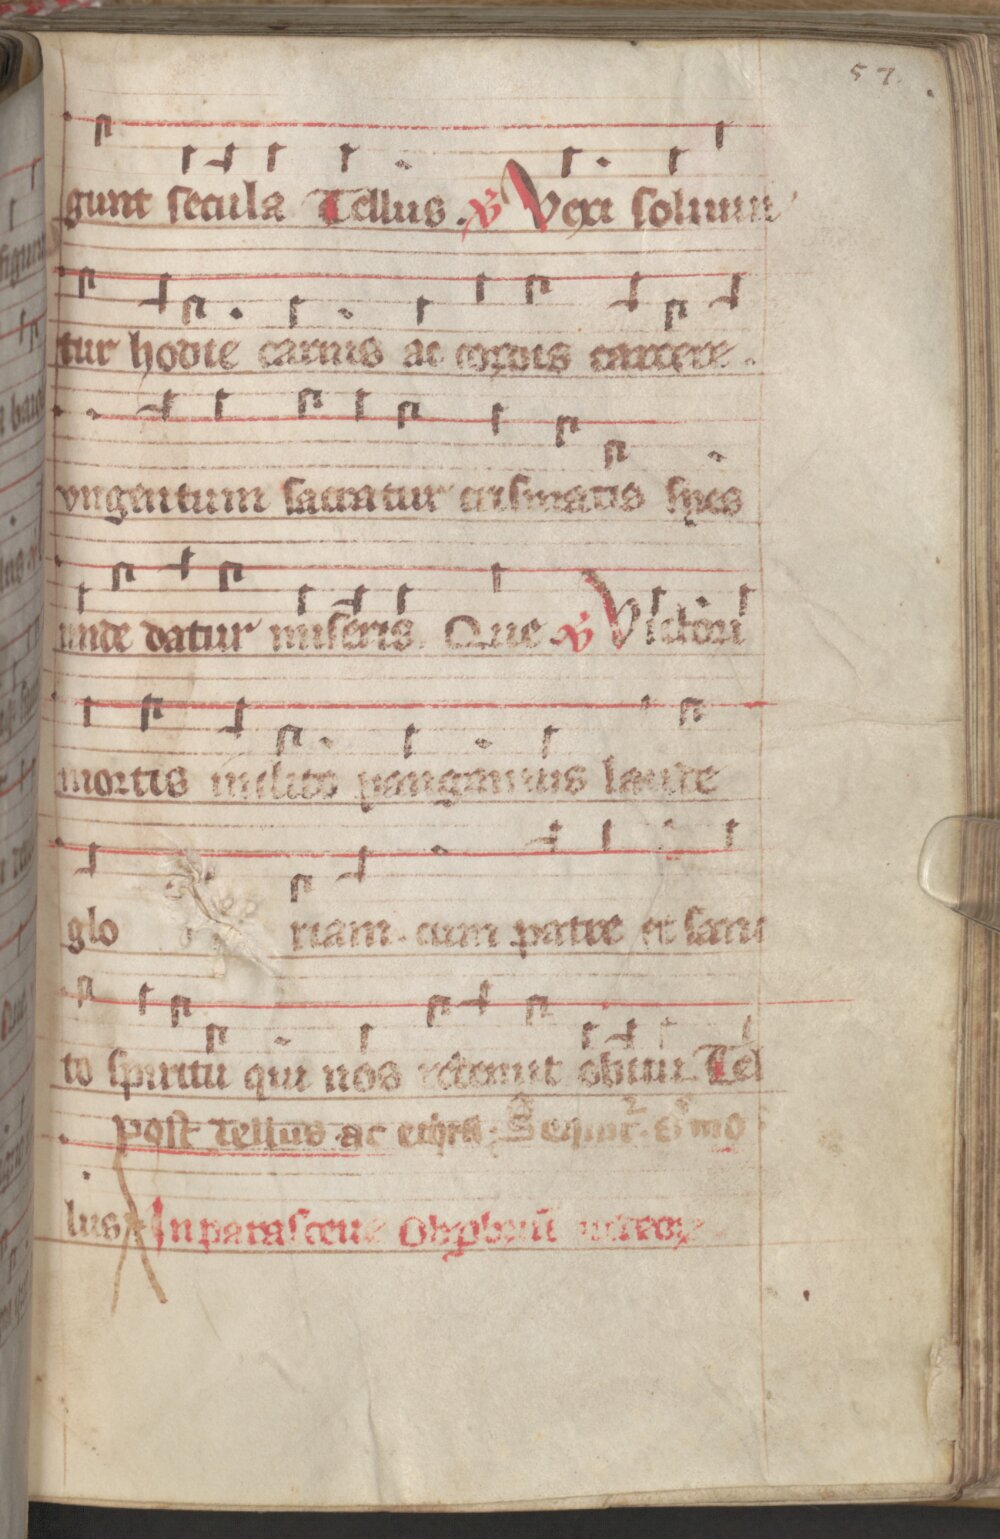 57.
gunt secula Tellus. ℣ Vexi soluun
tur hodie carnis ac cordis carcere.
vngentum sacratur crismatis spes
unde datur miseris. Que ℣ Victori
mortis inclito pangamus laude
glo riam. cum patre et sanc
to spiritu qui nos redemit obitu Tel
post tellus ac
lus In parasceue